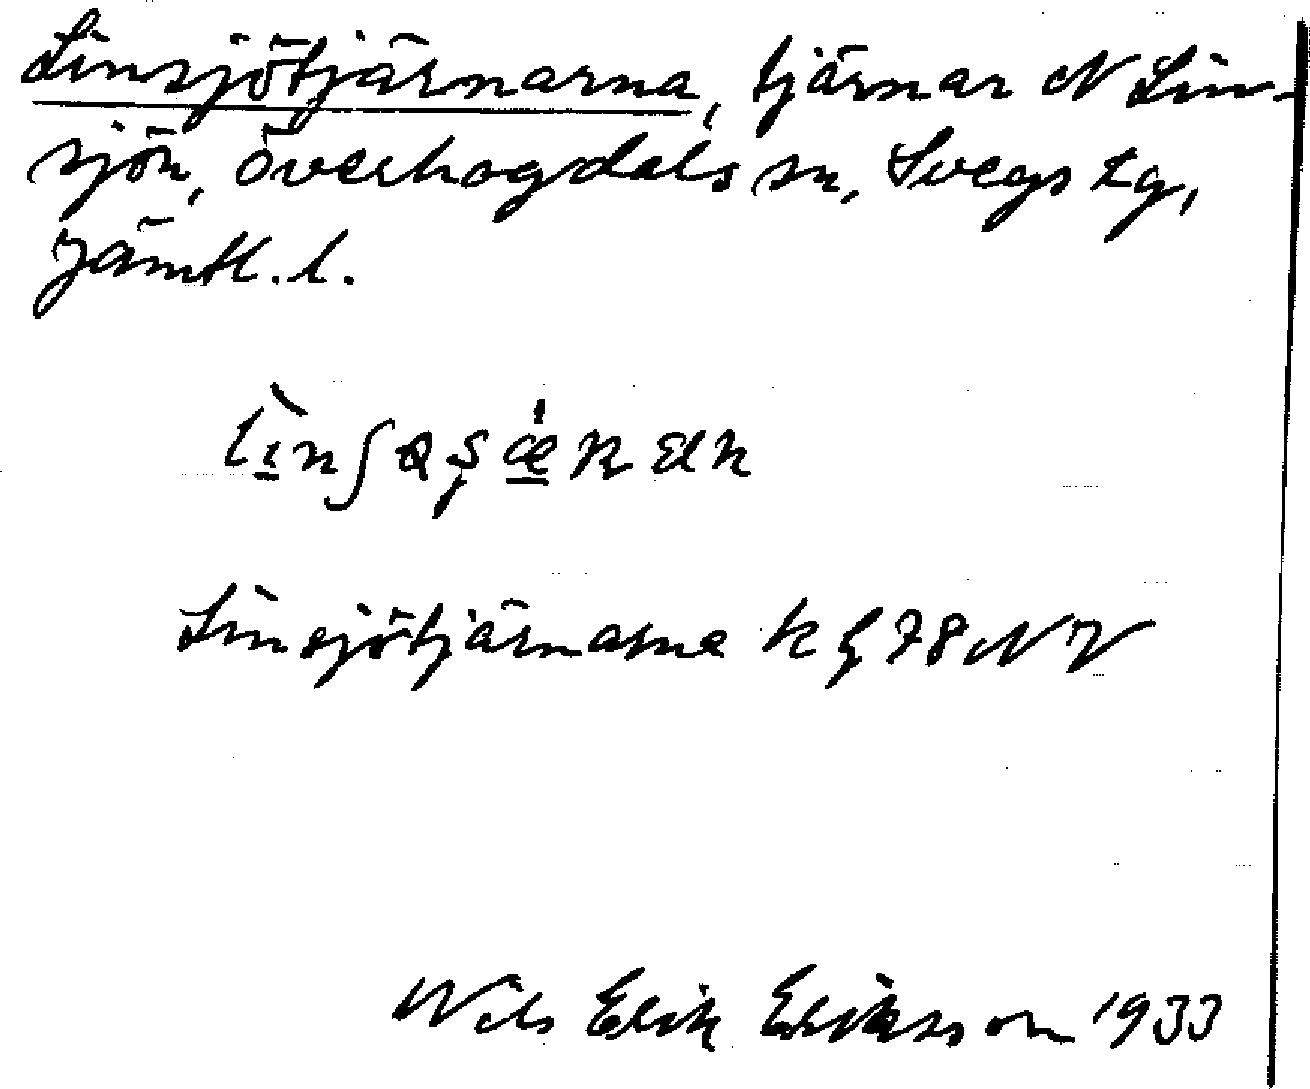 Linsjötjärnarna, tjärnar N Lin-
sjön, Överhogdals sn, Svegs tg,
Jämtl. l.
Linsjötjärnarna k bl 78 NV
Nils Erik Eriksson 1933